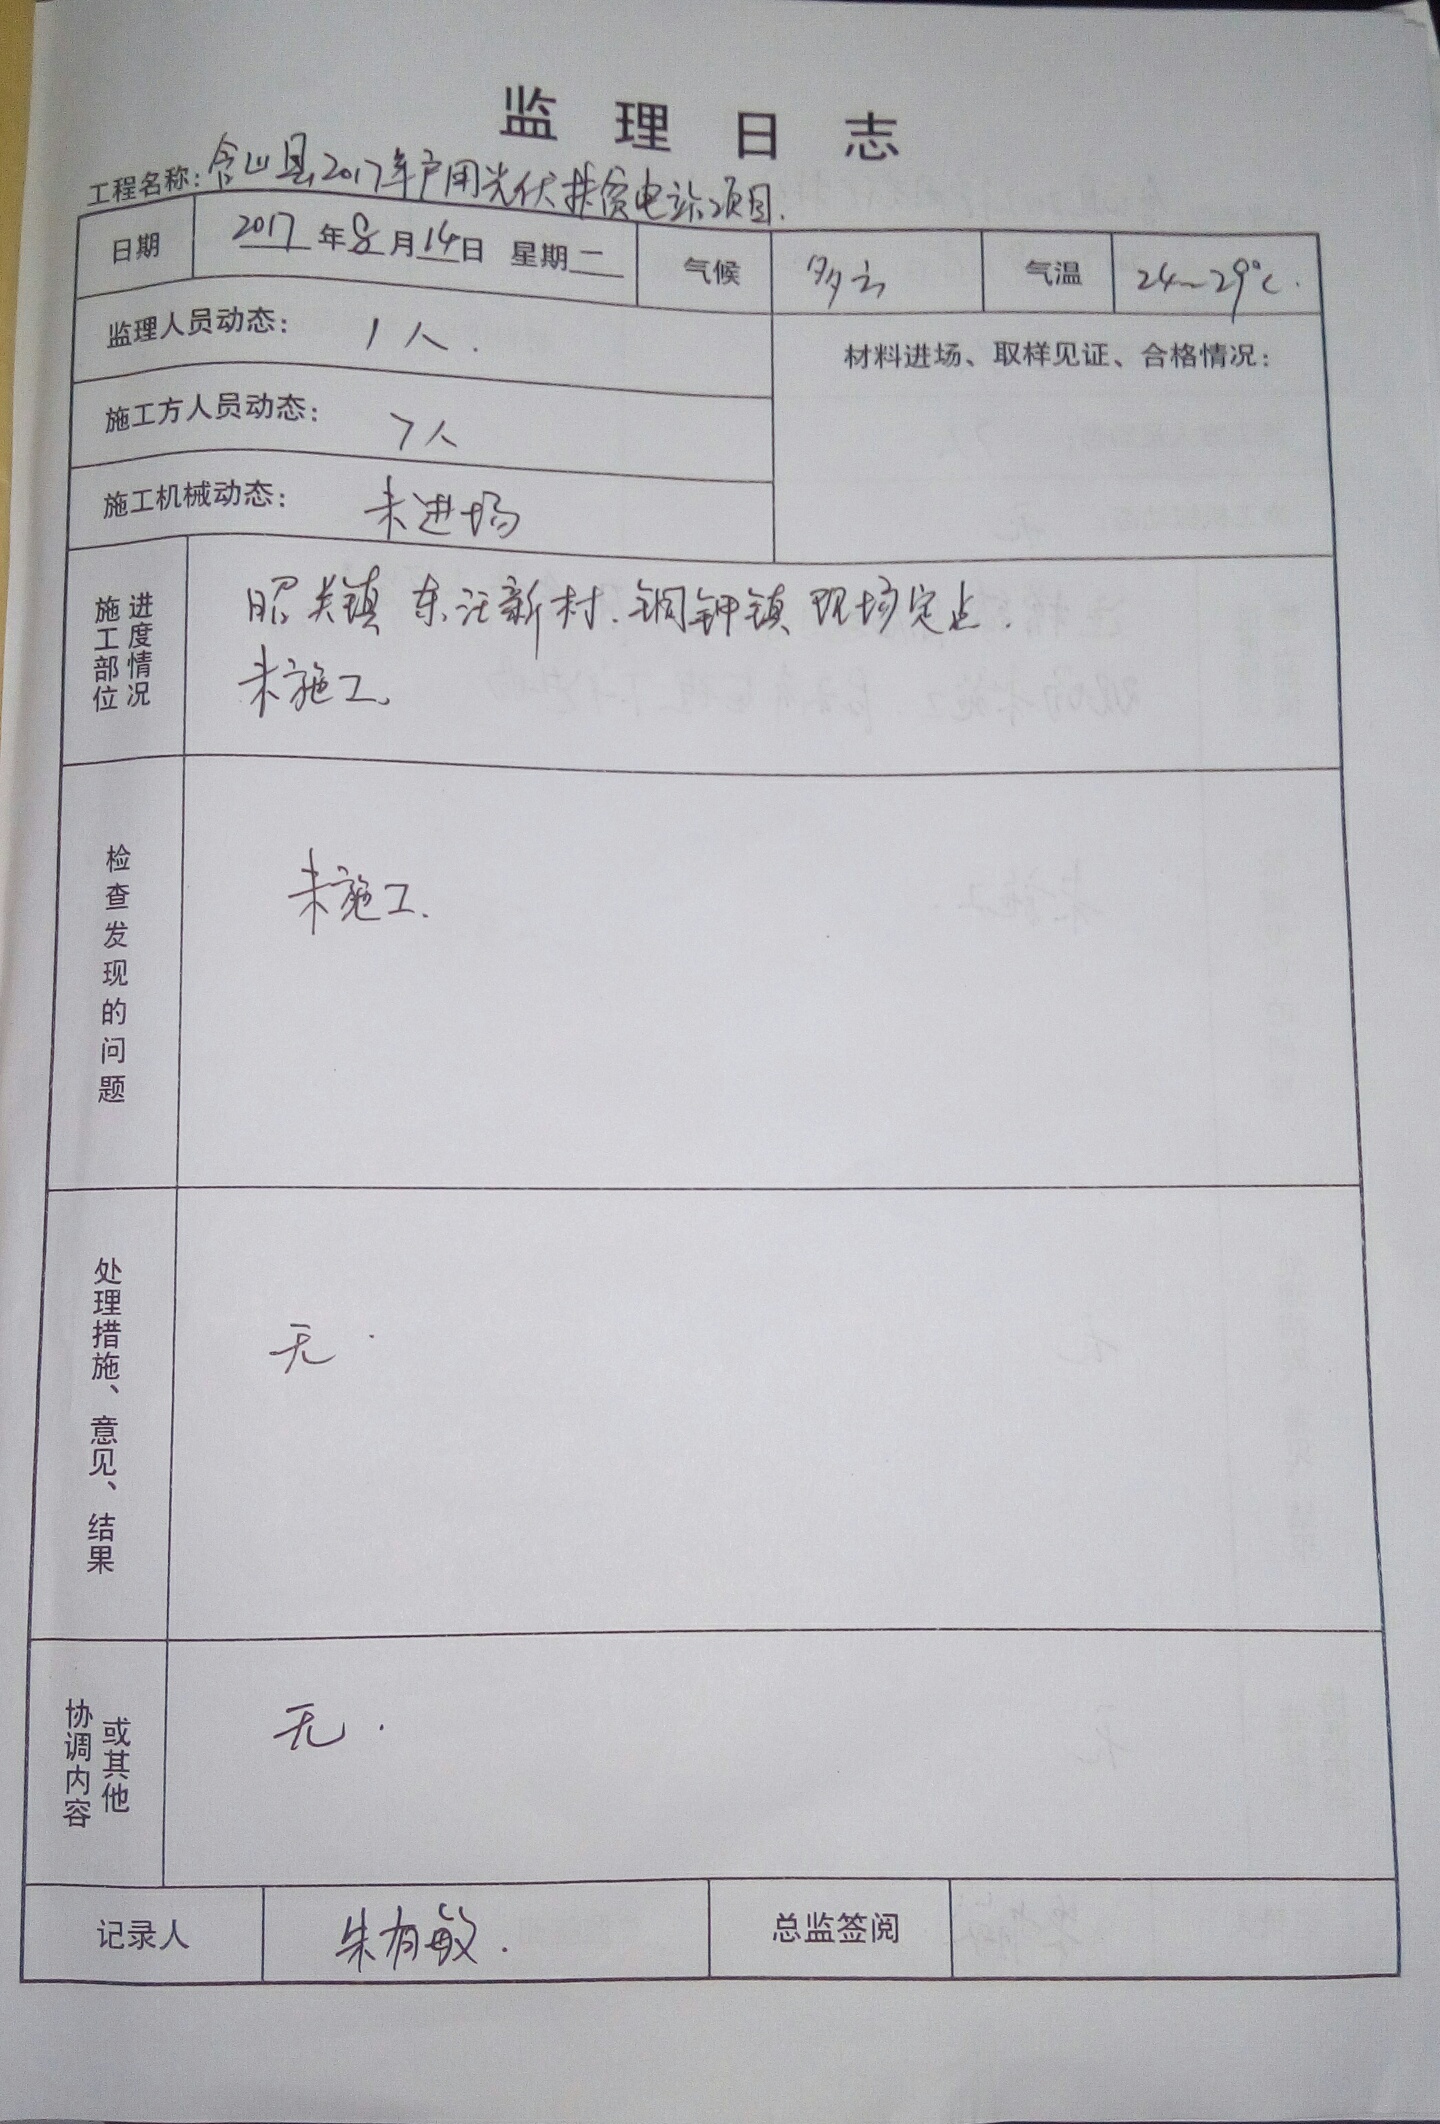 监理日志
工程名称：含山县2017年户用光伏扶贫电站项目.
日期 2017年8月14日 星期二 气候 多云 气温 24~29℃.
监理人员动态： 1人.
材料进场、取样见证、合格情况：
施工方人员动态： 7人
施工机械动态： 未进场
施工部位 进度情况
昭关镇 东汪新村. 铜钾镇 现场定点.
未施工.
检查发现的问题
未施工.
处理措施、意见、结果
无.
协调内容 或其他
无.
记录人 朱有敏. 总监签阅